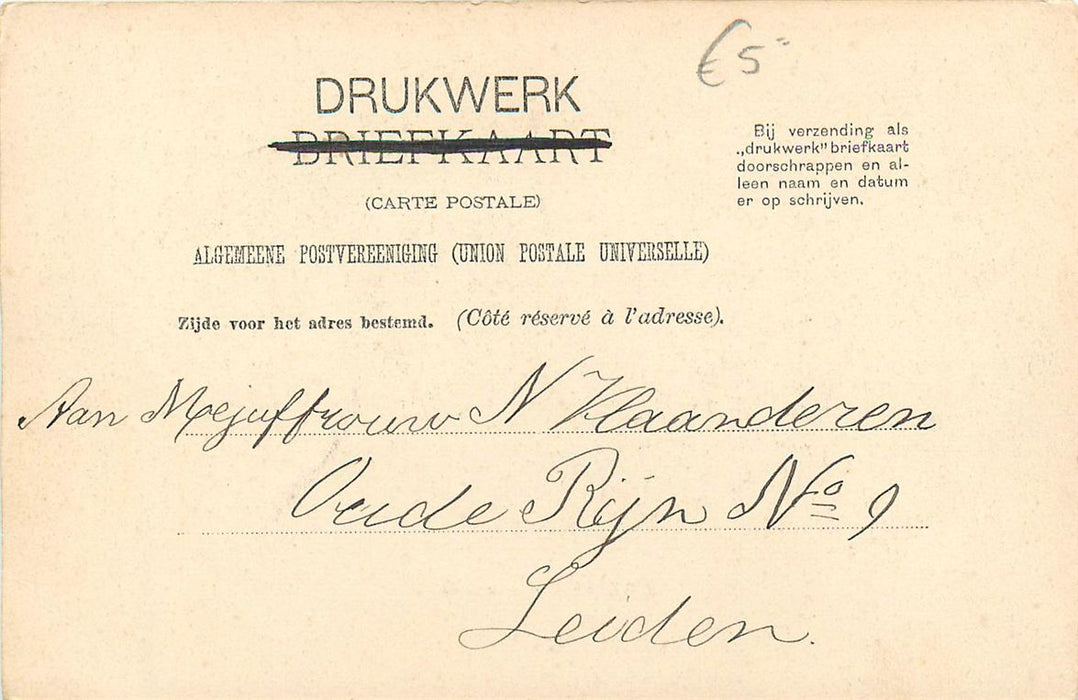 € 5=
DRUKWERK
BRIEFKAART
(CARTE POSTALE)
Bij verzending als
„drukwerk" briefkaart
doorschrappen en al-
leen naam en datum
er op schrijven.
ALGEMEENE POSTVEREENIGING (UNION POSTALE UNIVERSELLE)
Zijde voor het adres bestemd. (Côté réservé à l'adresse).
Aan Mejuffrouw N Vlaanderen
Oude Rijn No 9
Leiden.